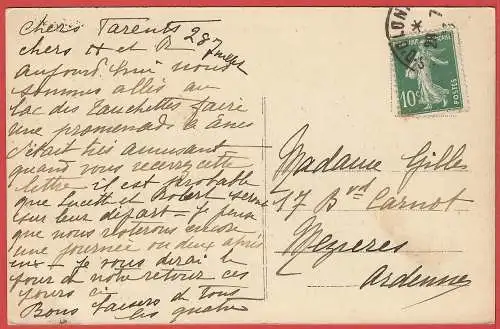 Chers Parents
chers
aujourd'hui nous
sommes allés au
Lac des Tauchettes faire
une promenade à ânes
c'était très amusant
quand vous recevrez cette
lettre - il est probable
que Lucette et Robert seront
sur leur départ - Je pense
que nous resterons encore
une journée ou deux après
eux - Je vous dirai le
jour de notre retour ces
jours ci
Bons baisers de tous
les quatre
Madame Gilles
17 Bvd Carnot
Mezieres
Ardennes
10c
POSTES